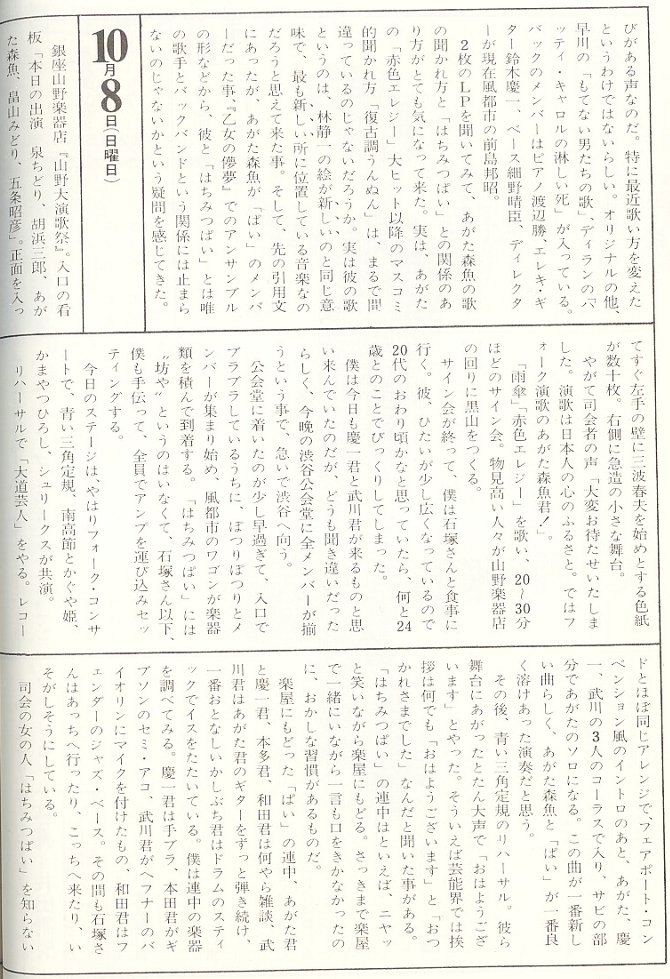 びがある声なのだ。特に最近歌い方を変えた
というわけではないらしい。オリジナルの他、
早川の「もてない男たちの歌」、ディランの「ハ
ッティ・キャロルの淋しい死」が入っている。
バックのメンバーはピアノ渡辺勝エレキ・ギ
ター鈴木慶一、ベース細野晴臣、ディレクタ
ーが現在風都市の前島邦昭。
2枚のLPを聞いてみて、あがた森魚の歌
の聞かれ方と「はちみつぱい」との関係のあ
り方がとても気になって来た。実は、あがた
の「赤色エレジー」大ヒット以降のマスコミ
的聞かれ方「復古調うんぬん」は、まるで間
違っているのじゃないだろうか。実は彼の歌
というのは、林静一の絵が新しいのと同じ意
味で、最も新しい所に位置している音楽なの
だろうと思えて来た事。そして、先の引用文
にあったが、あがた森魚が「ぱい」のメンバ
ーだった事、『乙女の儚夢』でのアンサンブル
の形などから、彼と「はちみつぱい」とは唯
の歌手とバックバンドという関係には止まら
ないのじゃないかという疑問を感じてきた。
10月8日(日曜日)
銀座山野楽器店『山野大演歌祭』。入口の看
板「本日の出演 泉ちどり、胡浜三郎、あが
た森魚、畠山みどり、五条昭彦」。正面を入っ
てすぐ左手の壁に三波春夫を始めとする色紙
が数十枚。右側に急造の小さな舞台。
やがて司会者の声「大変お待たせいたしま
した。演歌は日本人の心のふるさと。ではフ
ォーク演歌のあがた森魚君!」。
「雨傘」「赤色エレジー」を歌い、20〜30分
ほどのサイン会。物見高い人々が山野楽器店
の回りに黒山をつくる。
サイン会が終って、僕は石塚さんと食事に
行く。彼、ひたいが少し広くなっているので
20代のおわり頃かなと思っていたら、何と24
歳とのことでびっくりしてしまった。
僕は今日も慶一君と武川君が来るものと思
い来んでいたのだが、どうも聞き違いだった
らしく、今晩の渋谷公会堂に全メンバーが揃
うという事で、急いで渋谷へ向う。
公会堂に着いたのが少し早過ぎて、入口で
ブラブラしているうちに、ぽつりぽつりとメ
ンバーが集まり始め、風都市のワゴンが楽器
類を積んで到着する。「はちみつぱい」には
〝坊や〟というのはいなくて、石塚さん以下、
僕も手伝って、全員でアンプを運び込みセッ
ティングする。
今日のステージは、やはりフォーク・コンサ
ートで、青い三角定規、南高節とかぐや姫、
かまやつひろし、シュリークスが共演。
リハーサルで「大道芸人」をやる。レコー
ドとほぼ同じアレンジで、フェアポート・コン
ベンション風のイントロのあと、あがた、慶
一、武川の3人のコーラスで入り、サビの部
分であがたのソロになる。この曲が一番新し
い曲らしく、あがた森魚と「ぱい」が一番良
く溶けあった演奏だと思う。
その後、青い三角定規のリハーサル。彼ら
舞台にあがったとたん大声で「おはようござ
います」とやった。そういえば芸能界では挨
拶は何でも「おはようございます」と「おつ
かれさまでした」なんだと聞いた事がある。
「はちみつぱい」の連中はといえば、ニヤッ
と笑いながら楽屋にもどる。さっきまで楽屋
で一緒にいながら一言も口をきかなかったの
に、おかしな習慣があるものだ。
楽屋にもどった「ぱい」の連中、あがた君
と慶一君、本多君、和田君は何やら雑談、武
川君はあがた君のギターをずっと弾き続け、
一番おとなしいかしぶち君はドラムのスティ
ックでイスをたたいている。僕は連中の楽器
を調べてみる。慶一君は手ブラ、本田君がギ
ブソンのセミ・アコ、武川君がヘフナーのバ
イオリンにマイクを付けたもの、和田君はフ
ェンダーのジャズ・ベース。その間も石塚さ
んはあっちへ行ったり、こっちへ来たり、い
そがしそうにしている。
司会の女の人「はちみつぱい」を知らない